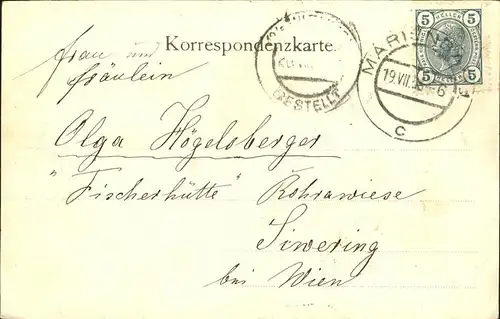 Korrespondenzkarte.
Frau und
Fräulein
Olga Högelsberger
"Fischerhütte" Rohrawiese
Siwering
bei Wien
BESTELLT
MARIENBAD
19.VII
6
C
5 HELLER 5
5 5